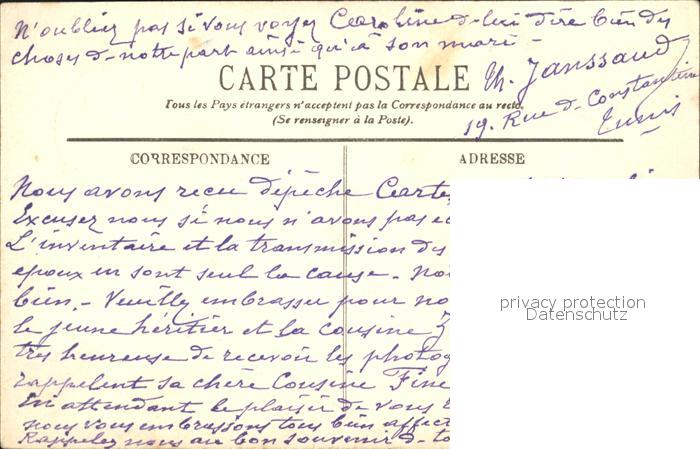 N'oubliez pas si vous voyez Caroline de lui dire bien des
choses de notre part ainsi qu'à son mari -
CARTE POSTALE
Th. Janssaud
19. Rue de Constantine
Tunis
Tous les Pays étrangers n'acceptent pas la Correspondance au recto.
(Se renseigner à la Poste).
CORRESPONDANCE
ADRESSE
Nous avons recu dépêche Carte
Excusez nous si nous n'avons pas
L'inventaire et la transmission des
epoux en sont seul la cause - No
bien. - Veuillez embrasser pour no
le jeune héritier et la cousine
très heureuse de recevoir les photog
rappelent sa chère Cousine Fine
En attendant le plaisir de vous
nous vous embrassons tous bien affect
Rappelez nous au bon souvenir de to
privacy protection
Datenschutz